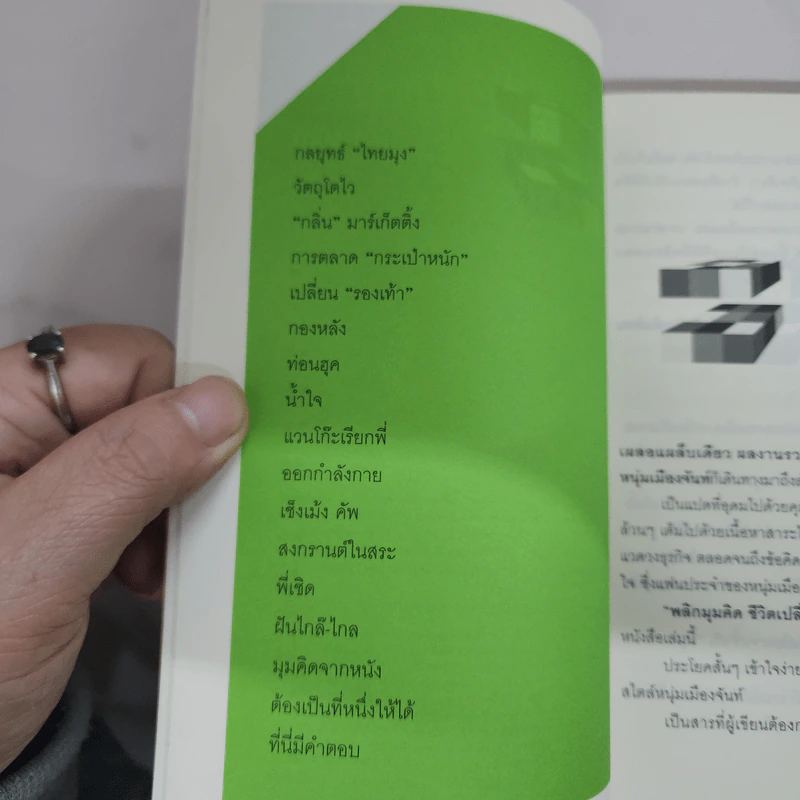 กลยุทธ์ “ไทยมุง”
วัตถุโตไว
“กลิ่น” มาร์เก็ตติ้ง
การตลาด “กระเป๋าหนัก”
เปลี่ยน “รองเท้า”
กองหลัง
ท่อนฮุค
น้ำใจ
แวนโก๊ะเรียกพี่
ออกกำลังกาย
เช็งเม้ง คัพ
สงกรานต์ในสระ
พี่เชิด
ฝันไกล๊-ไกล
มุมคิดจากหนัง
ต้องเป็นที่หนึ่งให้ได้
ที่นี่มีคำตอบ
เผลอแผล็บเดียว ผลงานรว
หนุ่มเมืองจันท์ก็เดินทางมาถึง
เป็นแปดที่อุดมไปด้วยคุ
ล้วนๆ เต็มไปด้วยเนื้อหาสาระ
แวดวงธุรกิจ ตลอดจนถึงข้อคิด
ใจ ซึ่งแฟนประจำของหนุ่มเมือ
“พลิกมุมคิด ชีวิตเปลี่
หนังสือเล่มนี้
ประโยคสั้นๆ เข้าใจง่าย
สไตล์หนุ่มเมืองจันท์
เป็นสารที่ผู้เขียนต้องก